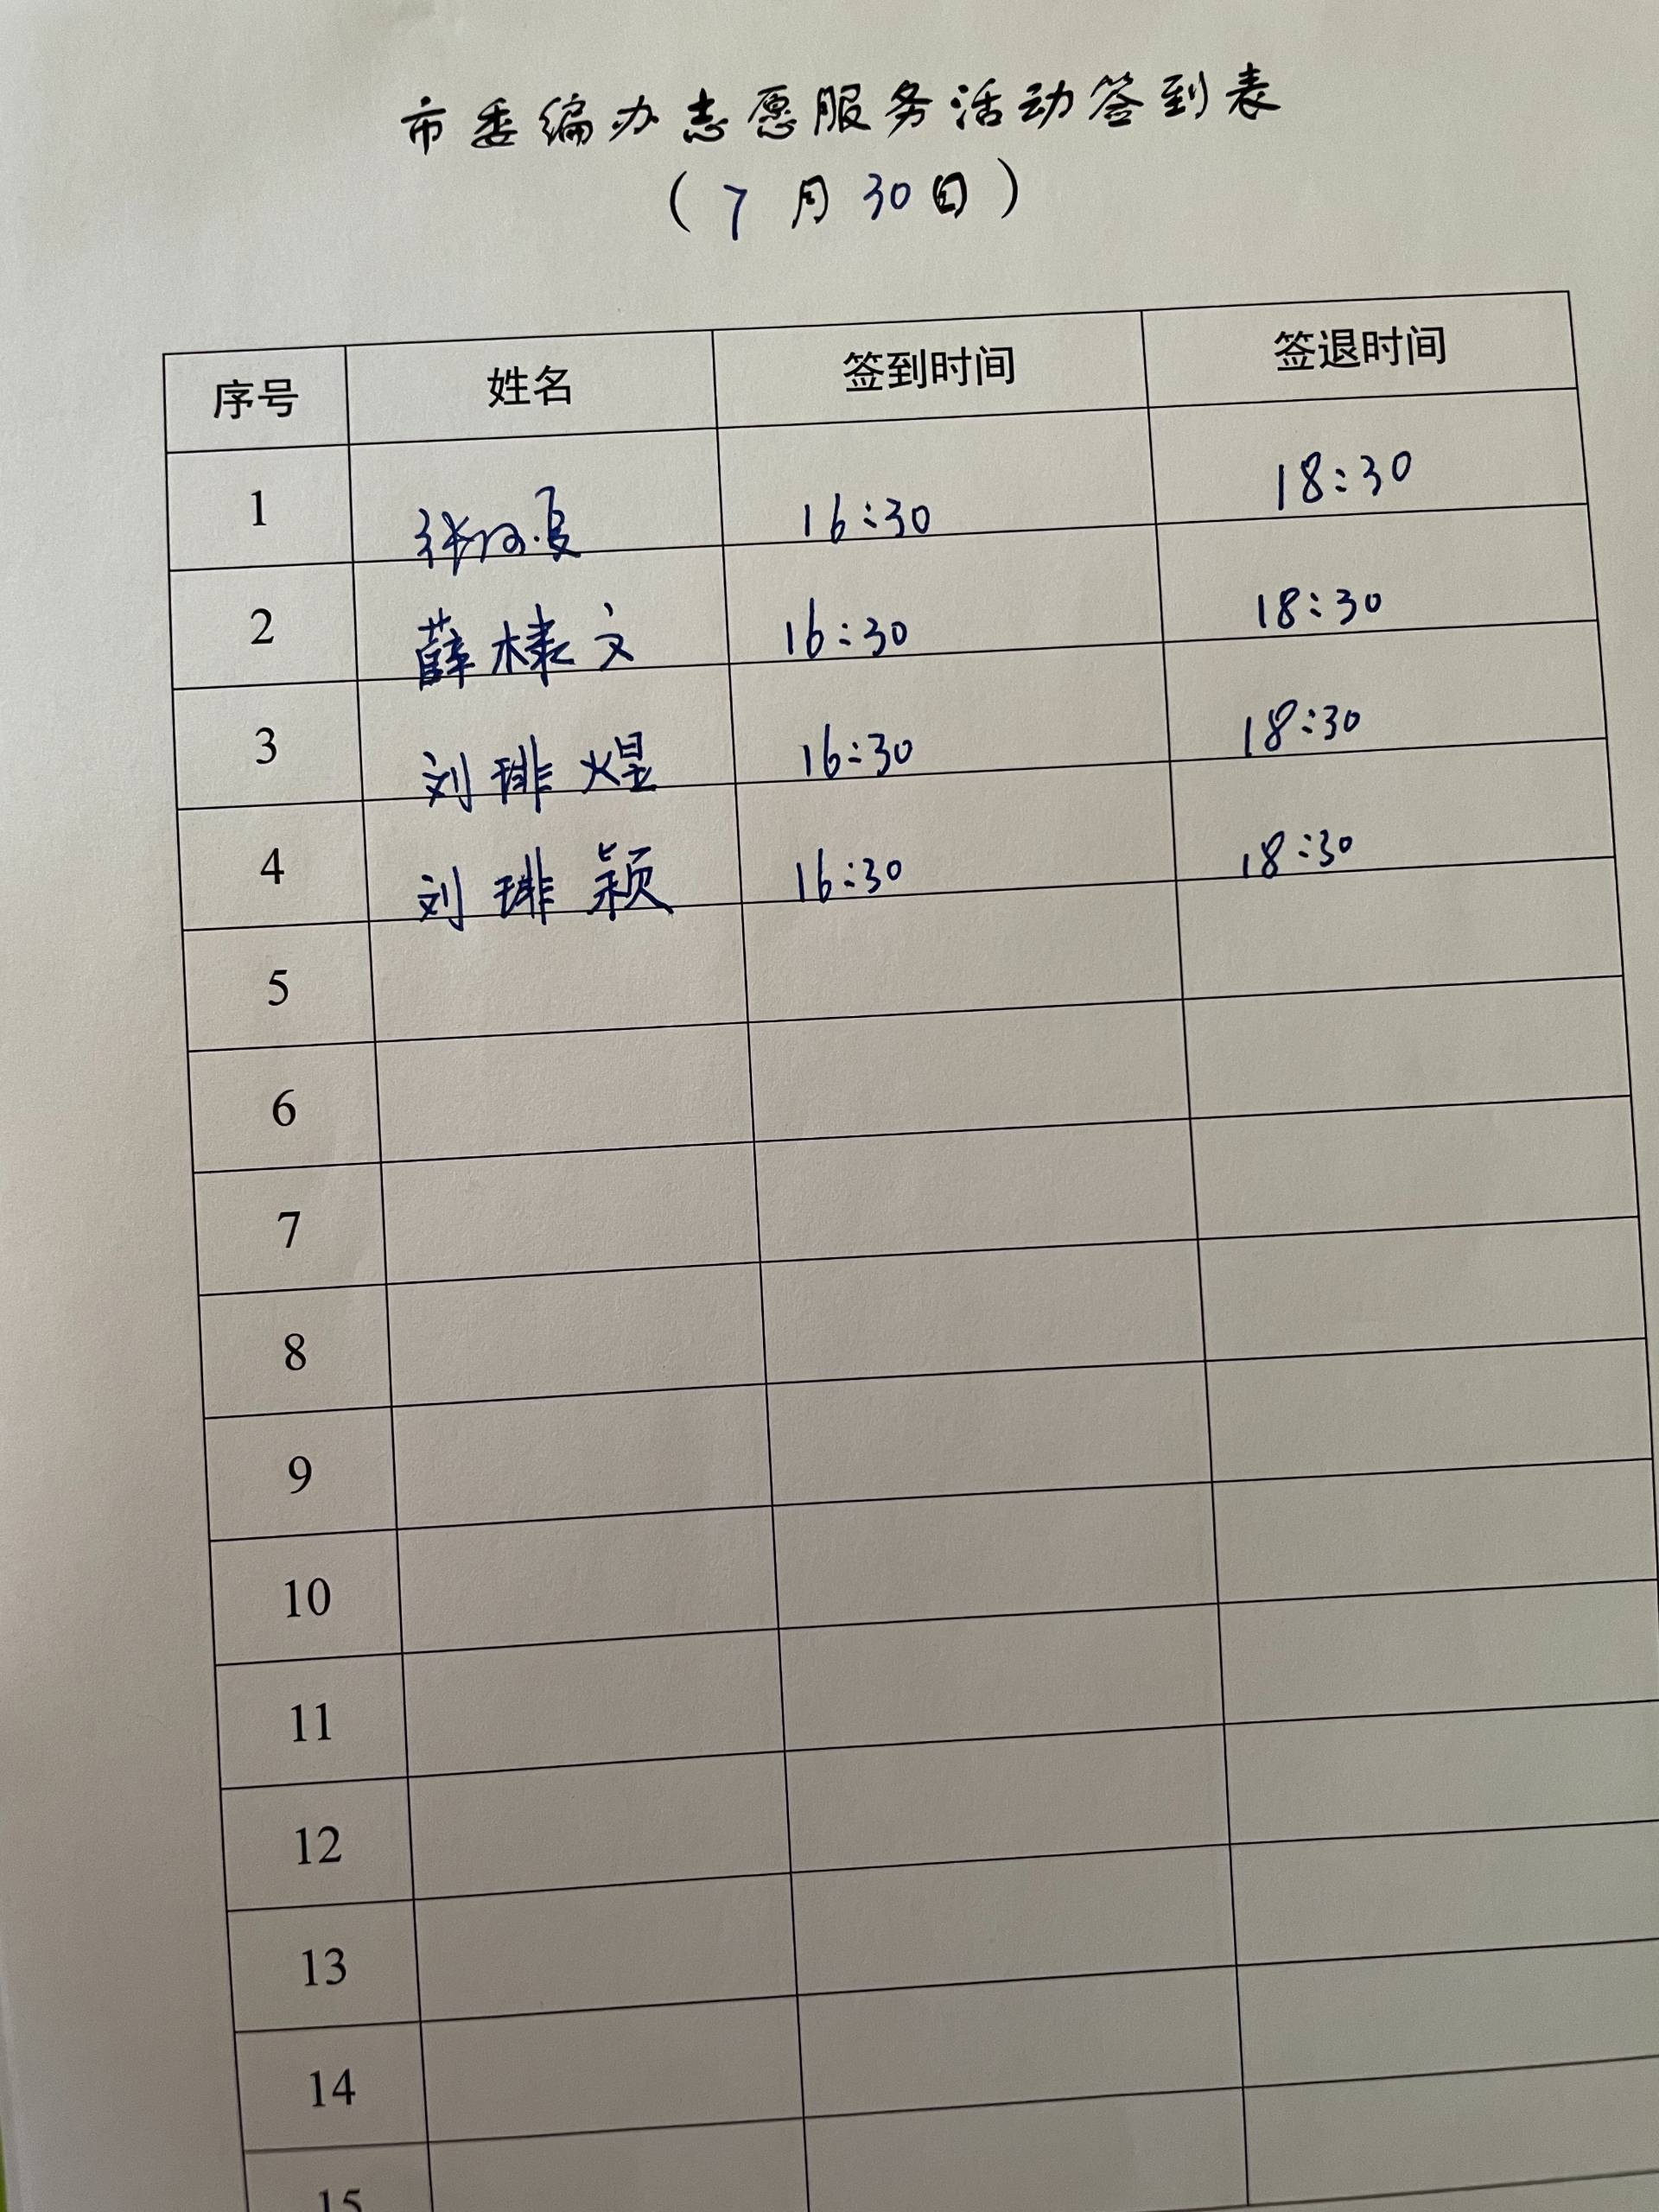 市委编办志愿服务活动签到表
(7月30日)
序号 姓名 签到时间 签退时间
1 张 夏 16:30 18:30
2 薛棣文 16:30 18:30
3 刘琲煜 16:30 18:30
4 刘琲颖 16:30 18:30
5
6
7
8
9
10
11
12
13
14
15